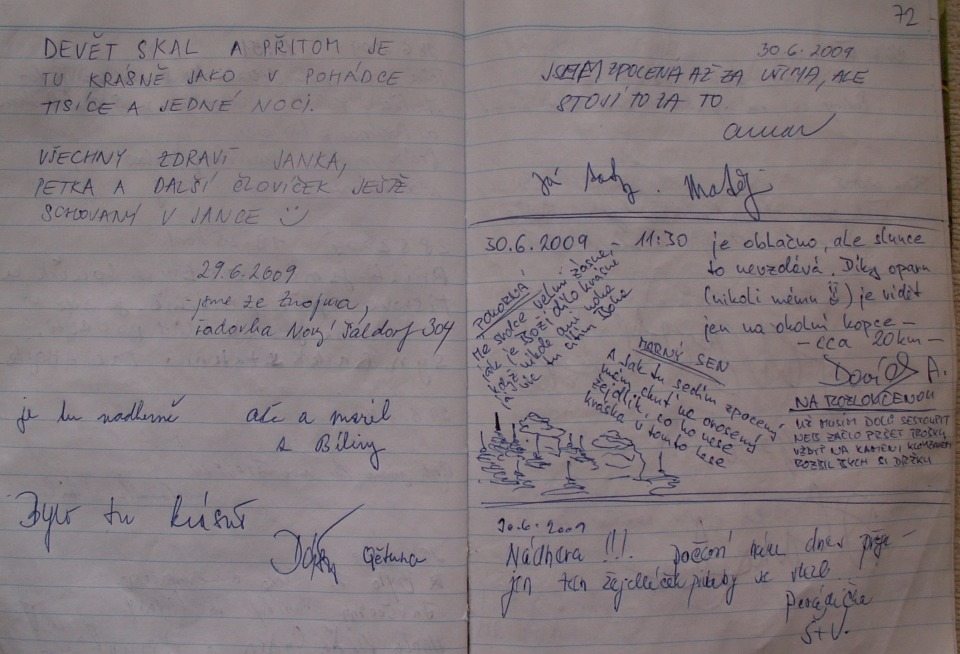 DEVĚT SKAL A PŘITOM JE
TU KRÁSNĚ JAKO V POHÁDCE
TISÍCE A JEDNÉ NOCI.
VŠECHNY ZDRAVÍ JANKA,
PETKA A DALŠÍ ČLOVÍČEK JEŠTĚ
SCHOVANÝ V JANCE
29.6.2009
jsme ze Znojma,
řadovka Nový Šaldorf 304
je tu nadherně
a
z Bíliny
Bylo tu krásně
72
30.6.2009
JSEM ZPOCENÁ AŽ ZA UŠIMA, ALE
STOJÍ TO ZA TO
Já taky. Matěj
30.6.2009 - 11:30
je oblačno, ale slunce
to nevzdává. Díky oparu
(nikoli mému) je vidět
jen na okolní kopce -
- cca 20km -
David A.
POKORNÁ
Mé srdce velmi žasne,
jak je Boží dílo krásné
když nikde ani noha
víc tu cítím Boha
MARNÝ SEN
A jak tu sedím zpocený
mám chuť na orosený
žejdlík, co ho nese
kráska v tomto lese
NA ROZLOUČENOU
UŽ MUSÍM DOLŮ SESTOUPIT
NEB ZAČLO PRŠET TROŠKU
VŽDYŤ NA KAMENI KLOUZAVÉM
ROZBIL BYCH SI DRŽKU
30.6.2009
Nádhera !!! Počasí nám dnes přeje
jen ten žejdlíček
Š+V.